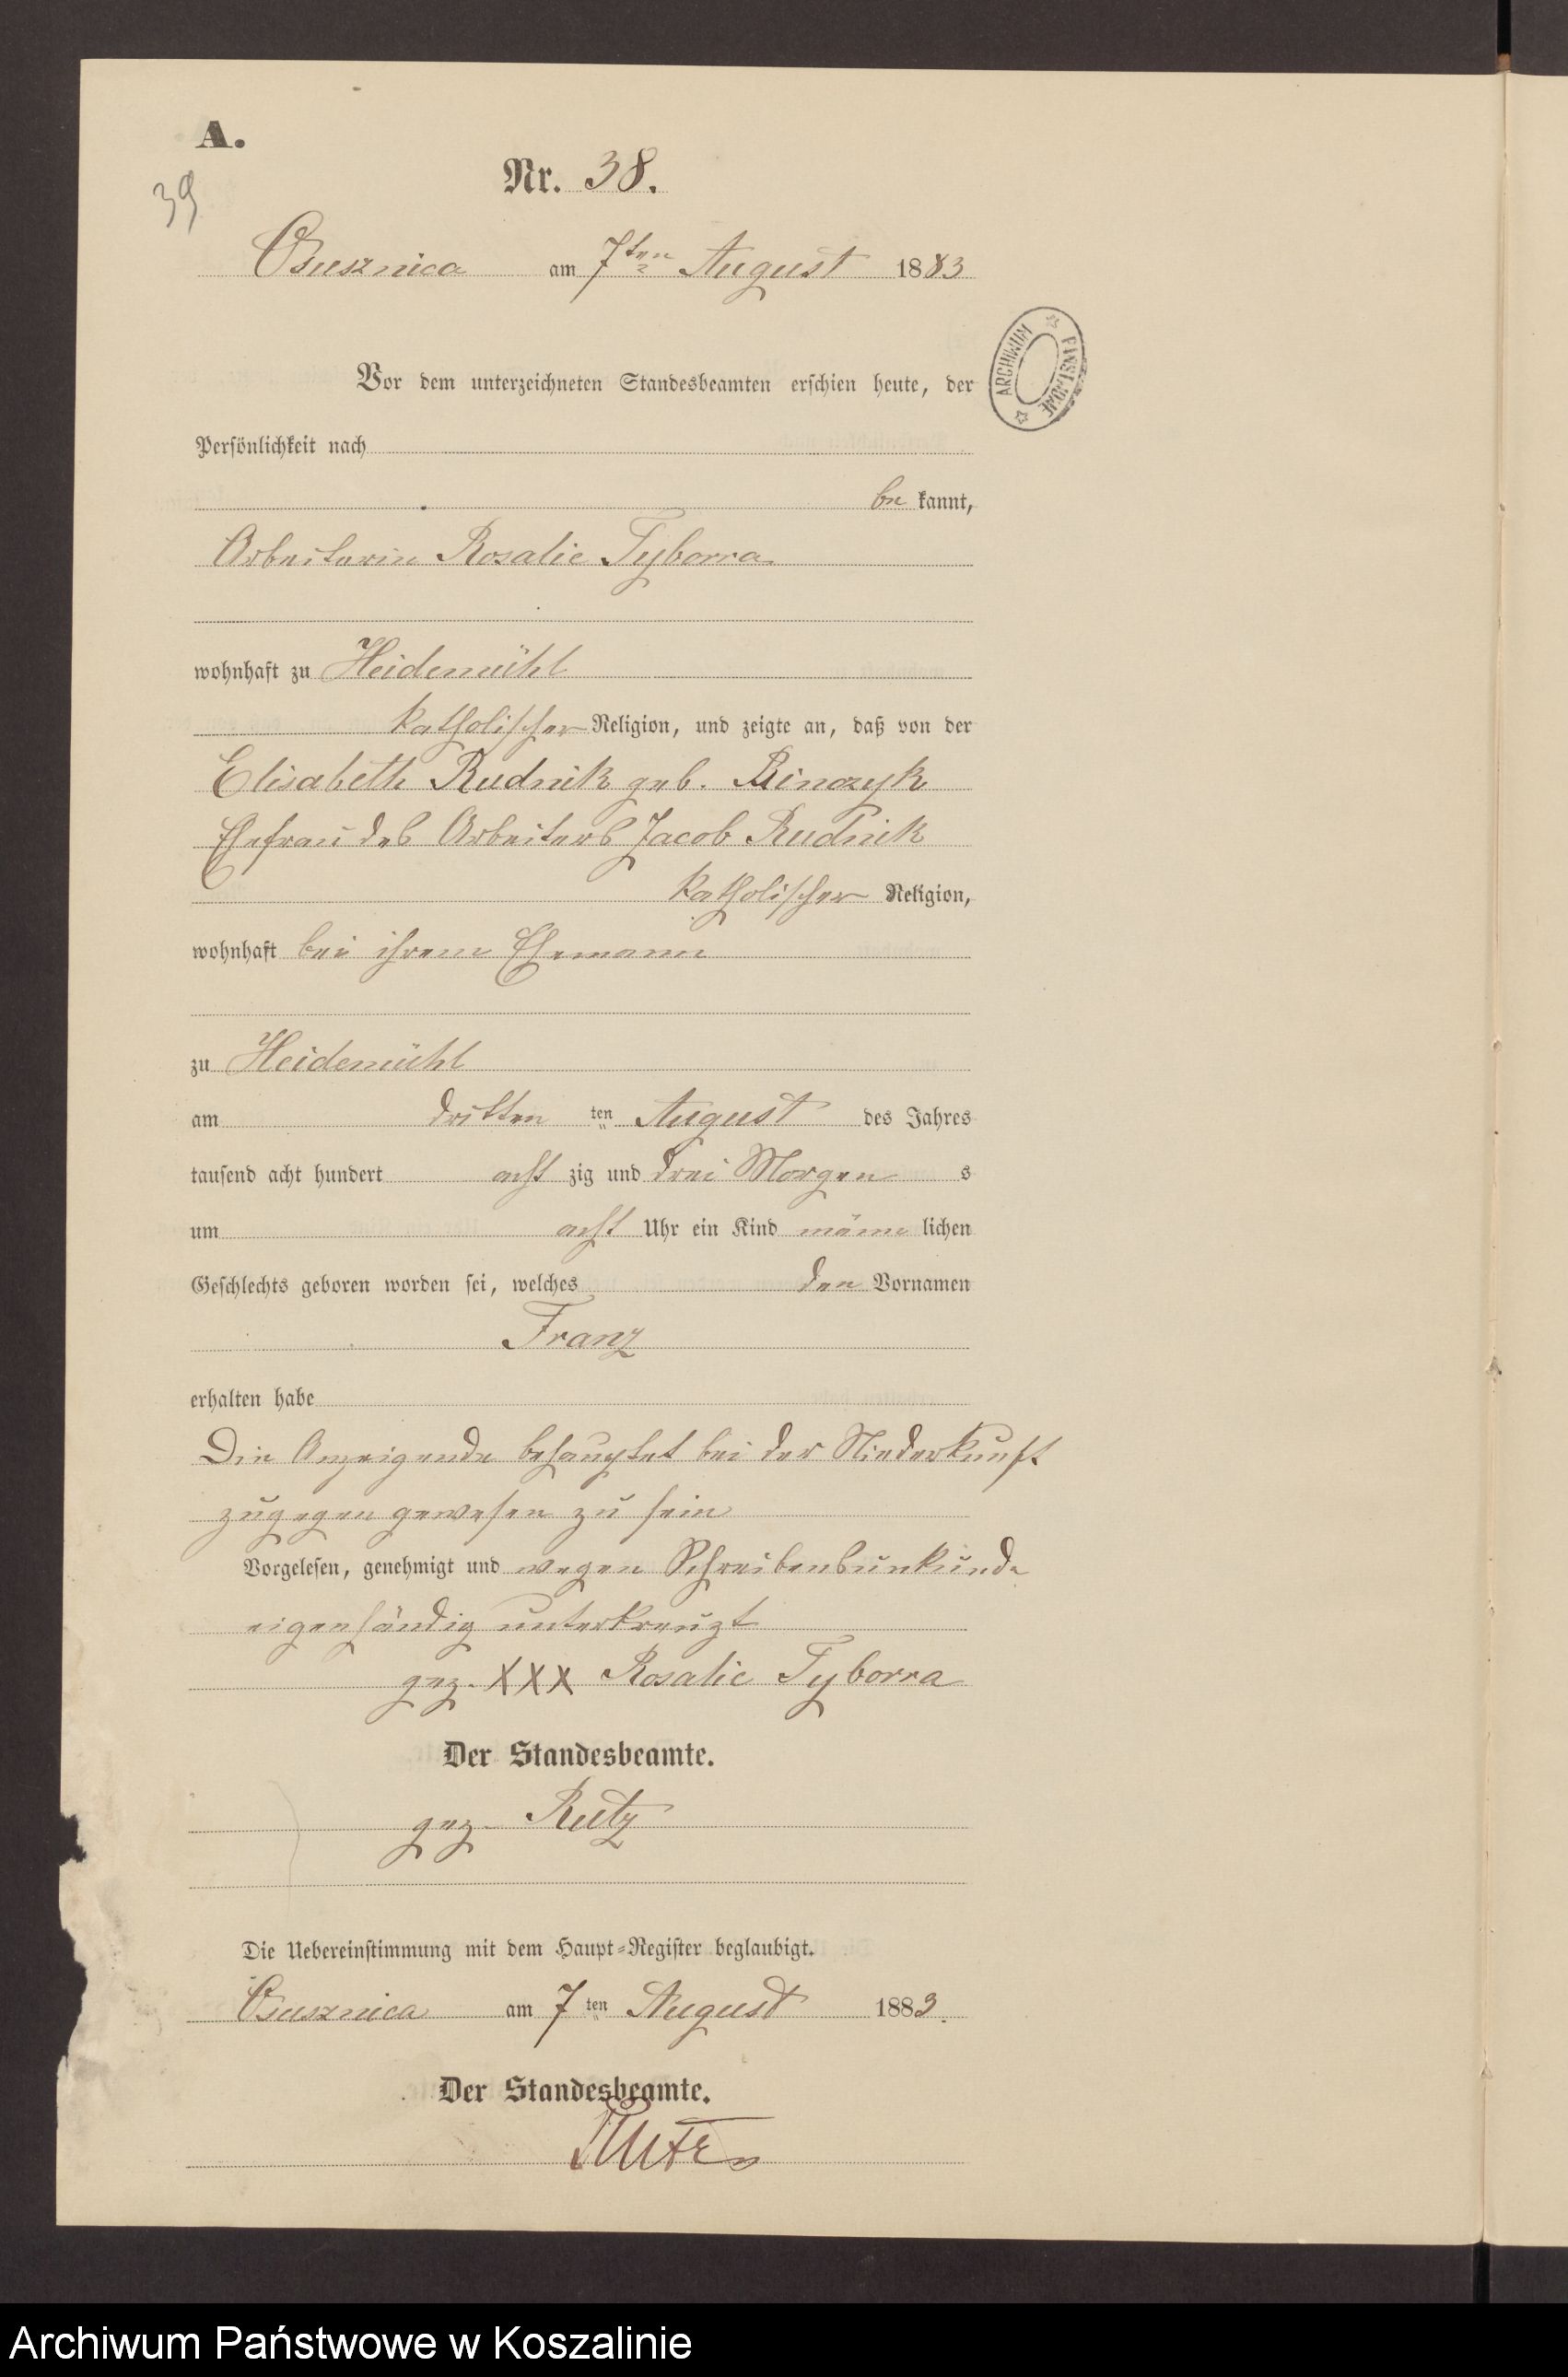 A.
39
Nr. 38.
Osusznica am 7ten August 1883
ARCHIWUM PAŃSTWOWE
Vor dem unterzeichneten Standesbeamten erschien heute, der
Persönlichkeit nach
be kannt,
Arbeiterin Rosalie Tyborra
wohnhaft zu Heidemühl
katholischer Religion, und zeigte an, daß von der
Elisabeth Rudnik geb. Binczyk
Ehefrau des Arbeiters Jacob Rudnik
katholischer Religion,
wohnhaft bei ihrem Ehemann
zu Heidemühl
am dritten ten August des Jahres
tausend acht hundert acht zig und drei Morgen s
um acht Uhr ein Kind männ lichen
Geschlechts geboren worden sei, welches den Vornamen
Franz
erhalten habe
Die Anzeigende behauptet bei der Niederkunft
zugegen gewesen zu sein
Vorgelesen, genehmigt und wegen Schreibensunkunde
eigenhändig unterkreuzt
gez. XXX Rosalie Tyborra
Der Standesbeamte.
gez. Rutz
Die Uebereinstimmung mit dem Haupt-Register beglaubigt.
Osusznica am 7 ten August 1883.
Der Standesbeamte.
Rutz
Archiwum Państwowe w Koszalinie